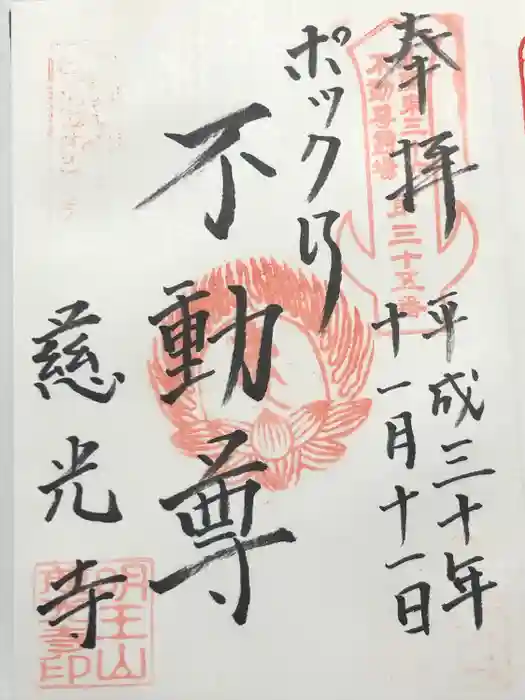 奉拝
平成三十年
十一月十一日
ポックリ
不動尊
慈光寺
明王山
慈光寺印